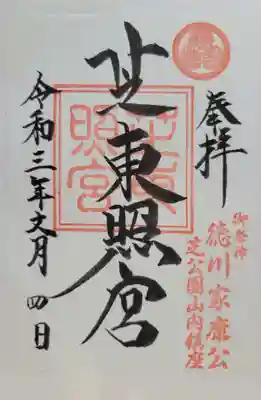 奉拝
御祭神
徳川家康公
芝公園山内鎮座
芝東照宮
芝東照宮
令和三年文月四日